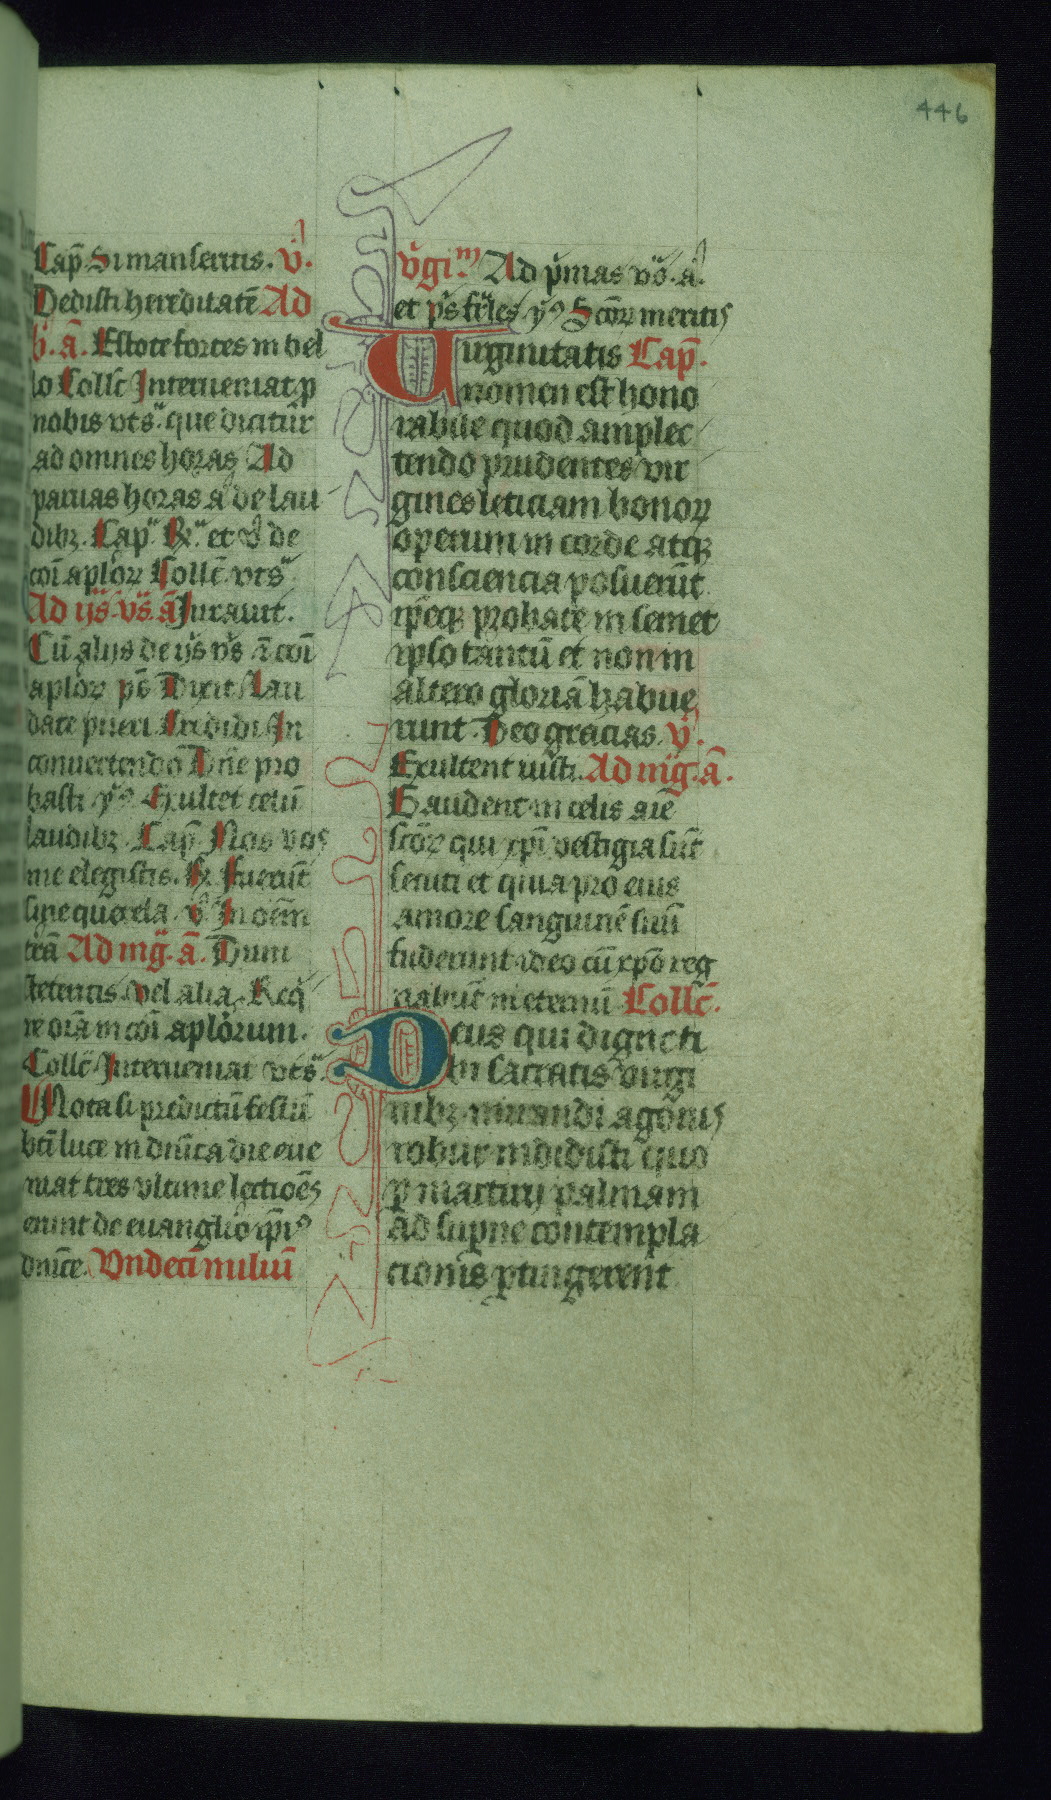 446
Cap̄ Si manseritis. v̄.
Dedisti hereditatē Ad
b̄. ā. Estote fortes in bel
lo Collc̄ Interueniat p̄
nobis vts. que dicitur
ad omnes horas Ad
paruas horas ā de lau
dibꝫ. Cap. ℟. et v̄ de
coī aplōꝝ Collc̄ vts
Ad ijs. vs̄. ā Iurauit.
Cū alijs de ijs vs̄ ī coī
aplōꝝ ps̄ Dixit Lau
date pueri Credidi In
conuertendo Dn̄e pro
basti ymꝰ Exultet celū
laudibꝫ Cap̄ Nos vos
me elegistis. ℟. Fuerūt
sine querela v̄ In oēm
trā Ad mḡ. ā. Dum
steteritis. vel alia Req̄
re oīa in coī aplōrum.
Collc̄ Interueniat vts
Nota si predictū festū
btī luce in dn̄ica die eue
niat tres vltime lectiōes
erunt de euanglīo ip̄iꝰ
dn̄ice. Vndeci milliū
v̄gim Ad p̄mas vs̄. ā.
et ps̄ fr̄les ymꝰ Scōꝝ meritis
Uirginitatis Cap̄.
nomen est hono
rabile quod amplec
tendo prudentes vir
gines leticiam bonoꝝ
operum in corde atqꝫ
consciencia posuerūt
ip̄eqꝫ probate in semet
ipso tantū et non in
altero gloriā habue
runt Deo gracias. v̄.
Exultent iusti. Ad mḡ. ā.
Gaudent in celis aīe
scōꝝ qui xp̄i vestigia sūt
secuti et quia pro eius
amore sanguinē suū
fuderunt ideo cū xp̄o reg
nabūt in eternū Collc̄.
Deus qui digneti
bi sacratis virgi
nibꝫ mirandi agonis
robur indidisti quo
ꝑ martirij palmam
ad sup̄ne contempla
cionis ꝑtingerent